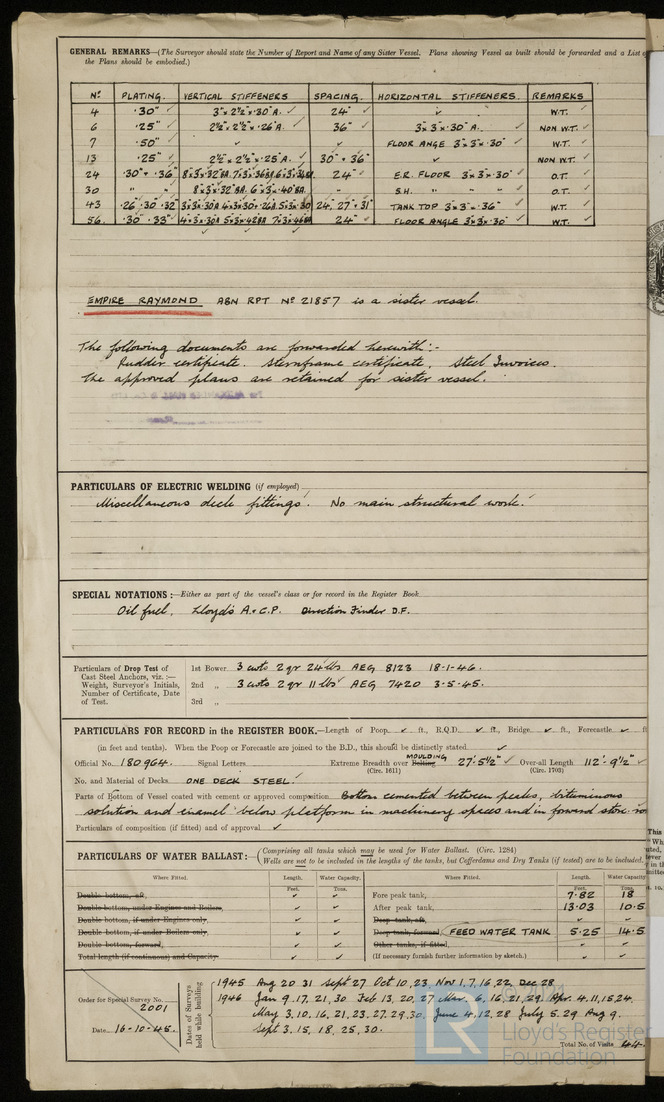 GENERAL REMARKS—(The Surveyor should state the Number of Report and Name of any Sister Vessel. Plans showing Vessel as built should be forwarded and a List
the Plans should be embodied.)
No. PLATING. VERTICAL STIFFENERS SPACING. HORIZONTAL STIFFENERS. REMARKS
4 .30" ✓ 3"x 2½"x .30"A. ✓ 24" ✓ ✓ W.T. ✓
6 .25" ✓ 2½"x 2½"x .26"A. ✓ 36" ✓ 3"x 3"x .30"A. ✓ NON W.T. ✓
7 .50" ✓ ✓ ✓ FLOOR ANGE 3"x 3"x .30" ✓ W.T. ✓
13 .25" ✓ 2½"x 2½"x .25"A. ✓ 30" + 36" ✓ NON W.T. ✓
24 .30" + .36 8x3x.32"BA. 24" ✓ E.R. FLOOR 3"x 3"x .30" ✓ O.T. ✓
30 " " 8x3x.32"BA. 6x3x.40"BA. " S.H. " " " ✓ O.T. ✓
43 .26 .30 .32" 3x3x.30A 4x3x.30+.26A 5x3x.30 24", 27" + 31" TANK TOP 3"x 3"x .36" ✓ W.T. ✓
56. .30" .33" 4x3x.30A 5x3x.42BA 24" ✓ FLOOR ANGLE 3"x 3"x .30" ✓ W.T. ✓
EMPIRE RAYMOND ABN RPT No 21857 is a sister vessel.
The following documents are forwarded herewith:-
Rudder certificate. Sternframe certificate. Steel Invoices.
The approved plans are retained for sister vessel.
PARTICULARS OF ELECTRIC WELDING (if employed)
Miscellaneous deck fittings. No main structural work.
SPECIAL NOTATIONS:—Either as part of the vessel's class or for record in the Register Book
Oil fuel. Lloyd's A. & C.P. Direction Finder D.F.
Particulars of Drop Test of
Cast Steel Anchors, viz.:—
Weight, Surveyor's Initials,
Number of Certificate, Date
of Test.
1st Bower 3 cwts 2 qr 24 lbs AEG 8123 18-1-46.
2nd ,, 3 cwts 2 qr 11 lbs AEG 7420 3-5-45.
3rd ,,
PARTICULARS FOR RECORD in the REGISTER BOOK.—Length of Poop ✓ ft., R.Q.D. ✓ ft., Bridge ✓ ft., Forecastle ✓ ft
(in feet and tenths). When the Poop or Forecastle are joined to the B.D., this should be distinctly stated ✓
Official No. 180964. Signal Letters Extreme Breadth over Belting MOULDING (Circ. 1611) 27'-5½" ✓ Over-all Length (Circ. 1703) 112'-9½" ✓
No. and Material of Decks ONE DECK STEEL.
Parts of Bottom of Vessel coated with cement or approved composition Bottom cemented between peaks, bituminous
solution and enamel below platform in machinery spaces and in forward store
Particulars of composition (if fitted) and of approval ✓
PARTICULARS OF WATER BALLAST:—(Comprising all tanks which may be used for Water Ballast. (Circ. 1284)
Wells are not to be included in the lengths of the tanks, but Cofferdams and Dry Tanks (if tested) are to be included.
Where Fitted. Length. Water Capacity. Where Fitted. Length. Water Capacity
Feet. Tons. Feet. Tons.
Double bottom, aft, ✓ ✓ Fore peak tank, 7.82 18
Double bottom, under Engines and Boilers, ✓ ✓ After peak tank, 13.03 10.5
Double bottom, if under Engines only, ✓ ✓ Deep tank, aft, ✓ ✓
Double bottom, if under Boilers only, ✓ ✓ Deep tank, forward, FEED WATER TANK 5.25 14.5
Double bottom, forward, ✓ ✓ Other tanks, if fitted, ✓ ✓
Total length (if continuous) and Capacity ✓ ✓ (If necessary furnish further information by sketch.)
Order for Special Survey No. 2001
Date 16-10-45.
Dates of Surveys held while building
1945 Aug 20 31 Sept 27 Oct 10, 23 Nov 1, 7, 16, 22, Dec 28
1946 Jan 9, 17, 21, 30 Feb 13, 20, 27 Mar 6, 16, 21, 29. Apr. 4, 11, 15, 24.
May 3, 10, 16, 21, 23, 27, 29, 30, June 4, 12, 28 July 5. 29 Aug 9.
Sept 3, 15, 18, 25, 30.
Total No. of Visits 44.
LR
Lloyd's Register
Foundation